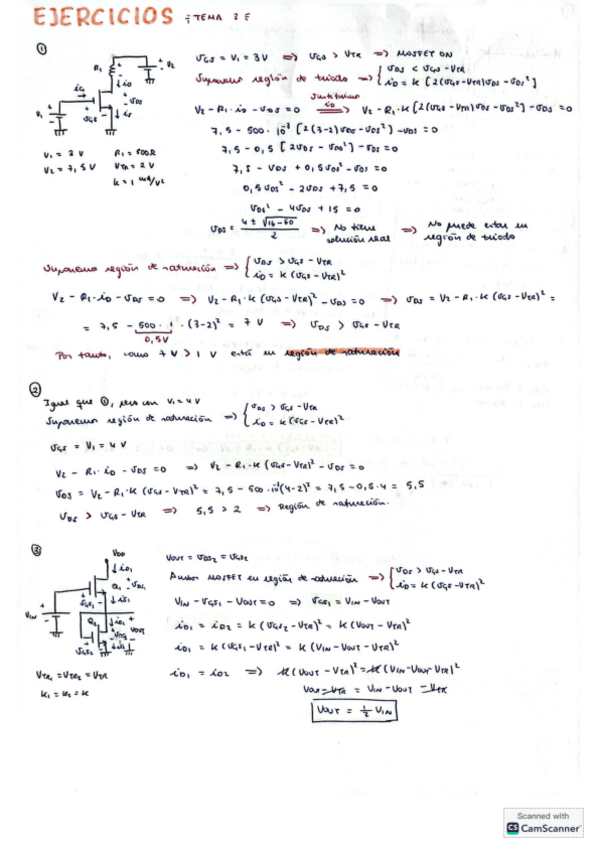 EJERCICIOS : TEMA 3 E
①
R1 iD V2
iG vDS
V1 vGS is
V1 = 3 V R1 = 500Ω
V2 = 7,5 V VTR = 2 V
K = 1 mA/V²
vGS = V1 = 3V ⟹ vGS > VTR ⟹ MOSFET ON
Suponemos región de triodo ⟹ { vDS < vGS - VTR
iD = K [2(vGS - VTR)vDS - vDS²]
V2 - R1 · iD - vDS = 0 Sustituimos iD ⟹ V2 - R1 · K [2(vGS - VTR)vDS - vDS²] - vDS = 0
7,5 - 500 · 10⁻³ [2(3-2)vDS - vDS²] - vDS = 0
7,5 - 0,5 [2vDS - vDS²] - vDS = 0
7,5 - vDS + 0,5vDS² - vDS = 0
0,5vDS² - 2vDS + 7,5 = 0
vDS² - 4vDS + 15 = 0
vDS = 4 ± √16-60 / 2 ⟹ No tiene solución real ⟹ No puede estar en región de triodo
Suponemos región de saturación ⟹ { vDS > vGS - VTR
iD = K (vGS - VTR)²
V2 - R1 · iD - vDS = 0 ⟹ V2 - R1 · K (vGS - VTR)² - vDS = 0 ⟹ vDS = V2 - R1 · K (vGS - VTR)² =
= 7,5 - 500 · 1 · (3-2)² = 7 V ⟹ vDS > vGS - VTR
0,5V
Por tanto, como 7 V > 1 V está en región de saturación
②
Igual que ①, pero con V1 = 4 V
Suponemos región de saturación ⟹ { vDS > vGS - VTR
iD = K (vGS - VTR)²
vGS = V1 = 4 V
V2 - R1 · iD - vDS = 0 ⟹ V2 - R1 · K (vGS - VTR)² - vDS = 0
vDS = V2 - R1 · K (vGS - VTR)² = 7,5 - 500 · 10⁻³ (4-2)² = 7,5 - 0,5 · 4 = 5,5
vDS > vGS - VTR ⟹ 5,5 > 2 ⟹ Región de saturación.
③
VDD
iD1
Q1 vDS1
vGS1 is1
VIN Q2 iD2 VOUT
vGS2
VTR1 = VTR2 = VTR
K1 = K2 = K
VOUT = vDS2 = vGS2
Ambos MOSFET en región de saturación ⟹ { vDS > vGS - VTR
iD = K (vGS - VTR)²
VIN - vGS1 - VOUT = 0 ⟹ vGS1 = VIN - VOUT
iD1 = iD2 = K (vGS2 - VTR)² = K (VOUT - VTR)²
iD1 = K (vGS1 - VTR)² = K (VIN - VOUT - VTR)²
iD1 = iD2 ⟹ K (VOUT - VTR)² = K (VIN - VOUT - VTR)²
VOUT - VTR = VIN - VOUT - VTR
VOUT = ½ VIN
Scanned with
CS CamScanner